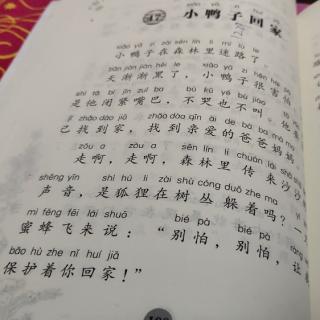 小鸭子回家
xiǎo yā zi zài sēn lín li mí lù le
小鸭子在森林里迷路了
tiān jiàn jiàn hēi le xiǎo yā zi hěn hài
天渐渐黑了，小鸭子很害怕
shì tā bì jǐn zuǐ ba bù kū yě bú jiào
是他闭紧嘴巴，不哭也不叫
jǐ zhǎo dào jiā zhǎo dào qīn ài de bà ba mā ma
己找到家，找到亲爱的爸爸妈妈
zǒu a zǒu a sēn lín li chuán lái shā
走啊，走啊，森林里传来沙沙
shēng yīn shì hú li zài shù cóng duǒ zhe ma
声音，是狐狸在树丛躲着吗？一
mì fēng fēi lái shuō bié pà bié pà
蜜蜂飞来说：“别怕，别怕，让
bǎo hù zhe nǐ huí jiā
保护着你回家！”